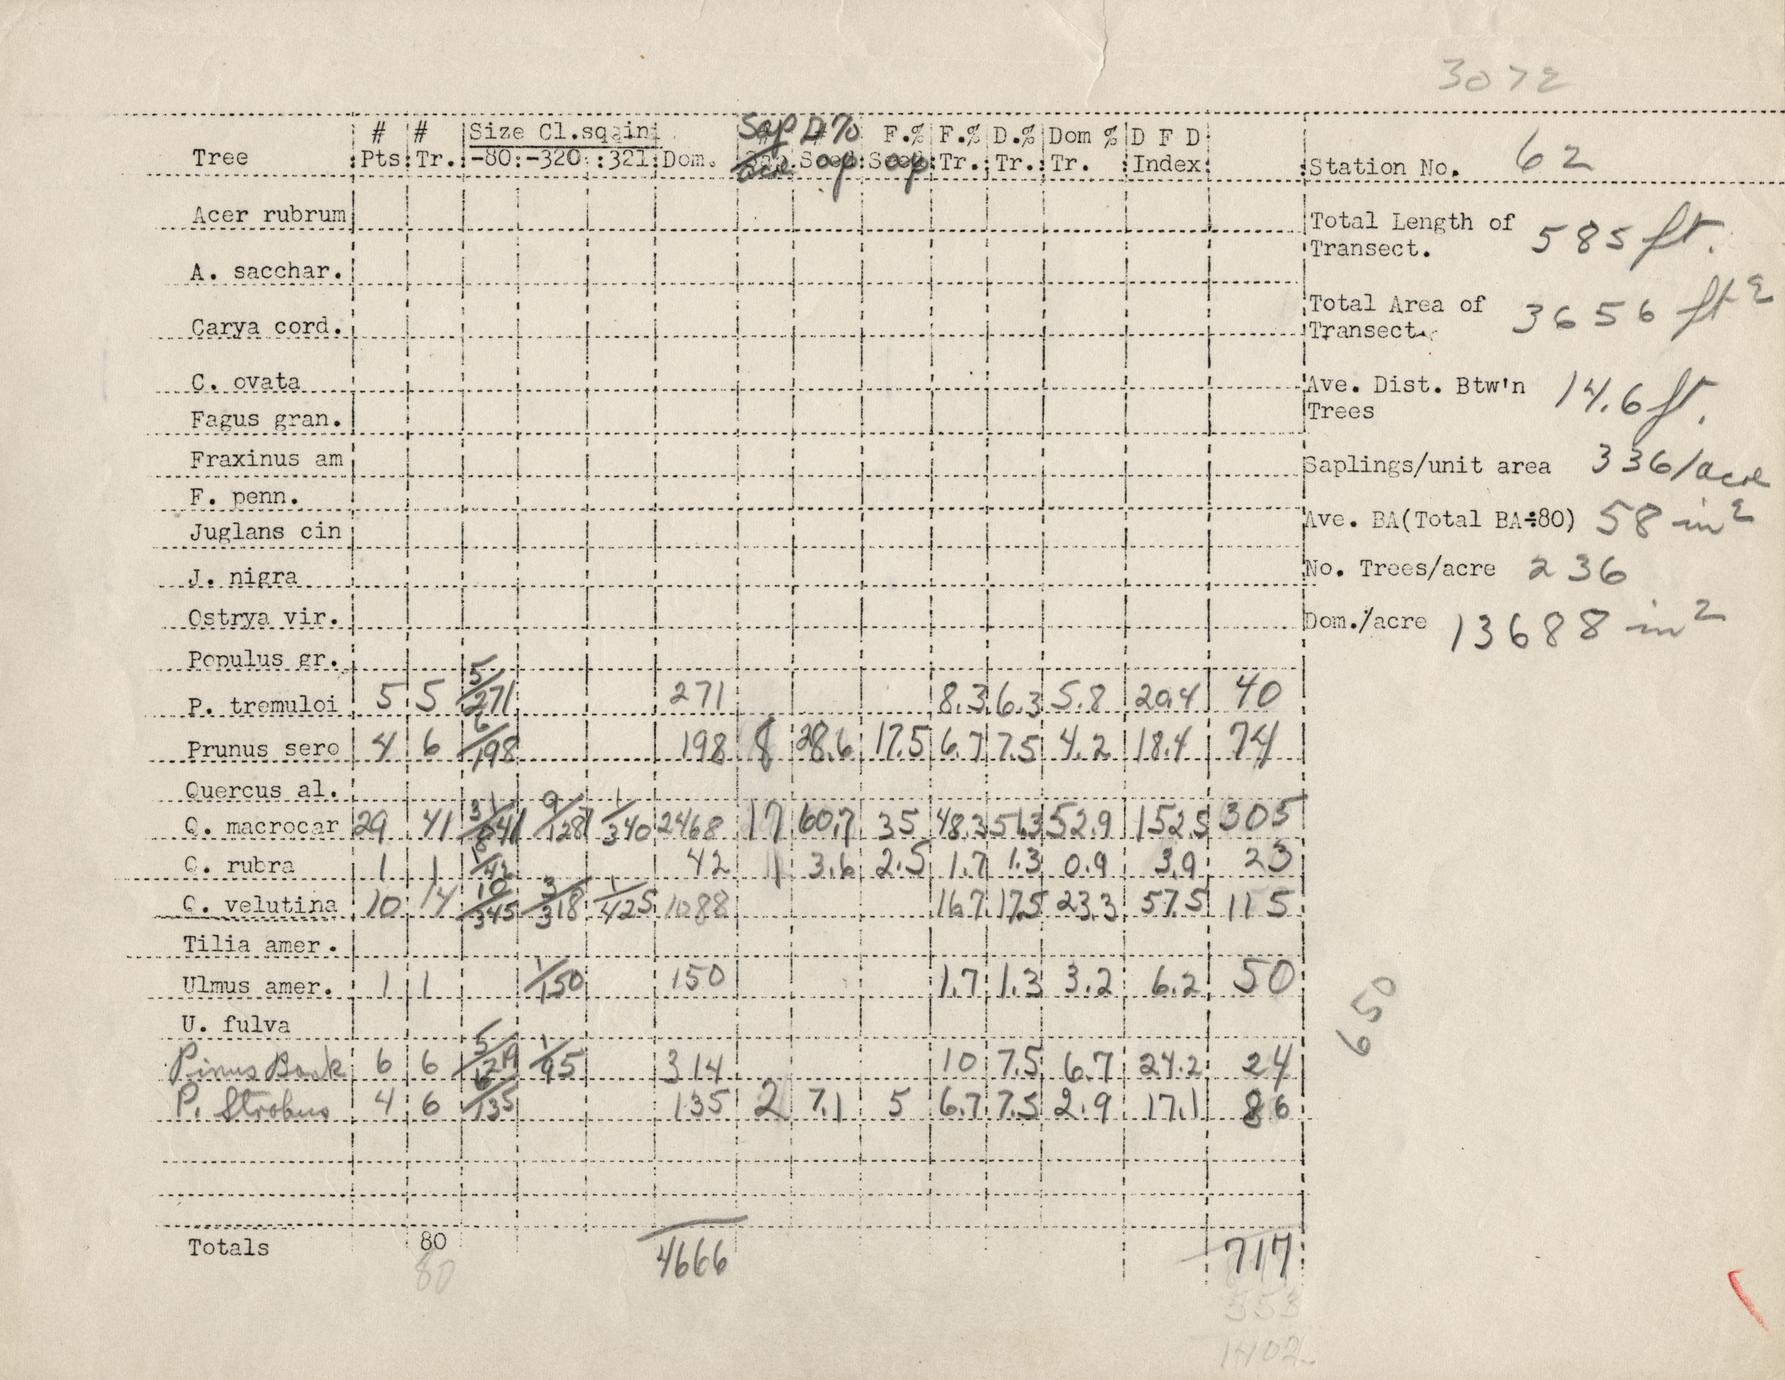 3072
# # Size Cl.sq in Sap D% F.% F.% D.% Dom % D F D
Tree Pts Tr. -80: -320: :321: Dom. acre Sap Sap Tr. Tr. Tr. Index Station No. 62
Acer rubrum
Total Length of Transect. 585 ft.
A. sacchar.
Total Area of Transect. 3656 ft2
Carya cord.
C. ovata
Ave. Dist. Btw'n Trees 14.6 ft.
Fagus gran.
Fraxinus am
Saplings/unit area 336/acre
F. penn.
Ave. BA(Total BA÷80) 58 in2
Juglans cin
J. nigra
No. Trees/acre 236
Ostrya vir.
Dom./acre 13688 in2
Populus gr.
P. tremuloi 5 5 5/271 271 8.3 6.3 5.8 20.4 40
Prunus sero 4 6 6/198 198 8 28.6 17.5 6.7 7.5 4.2 18.4 74
Quercus al.
Q. macrocar 29 41 31/841 9/1287 1/340 2468 17 60.7 35 48.3 51.3 52.9 152.5 305
Q. rubra 1 1 1/42 42 1 3.6 2.5 1.7 1.3 0.9 3.9 23
Q. velutina 10 14 10/345 3/318 1/425 1088 16.7 17.5 23.3 57.5 115
Tilia amer.
Ulmus amer. 1 1 1/150 150 1.7 1.3 3.2 6.2 50
U. fulva
650
Pinus Bank 6 6 5/219 1/95 314 10 7.5 6.7 24.2 24
P. Strobus 4 6 6/135 135 2 7.1 5 6.7 7.5 2.9 17.1 86
Totals 80 4666 717
80
553
1402